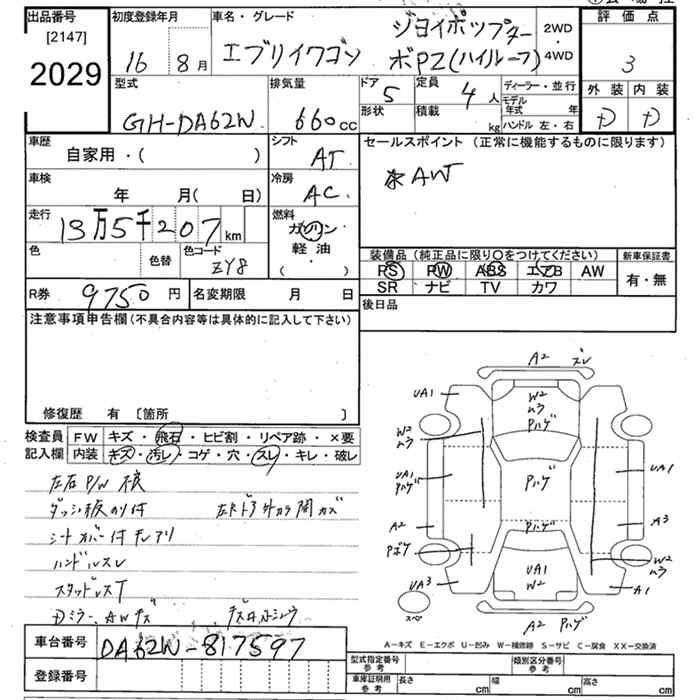 出品番号
[2147]
2029
初度登録年月
16 8月
車名・グレード
エブリイワゴン
ジョイポップター
ボPZ(ハイルーフ)
2WD
・
4WD
評価点
3
型式
GH-DA62W
排気量
660cc
ドア
5
定員
4人
形状
積載
kg
ディーラー・並行
モデル年式 年
ハンドル 左・右
外装 内装
D D
車歴
自家用・( )
シフト
AT
セールスポイント (正常に機能するものに限ります)
AW
車検
年 月( 日)
冷房
AC
走行
13万5千207km
燃料
ガソリン
軽油
・( )
色
色替
色コード
ZY8
装備品 (純正品に限り○をつけてください)
PS PW ABS エアB AW
SR ナビ TV カワ
新車保証書
有・無
R券 9750円
名変期限 月 日
後日品
注意事項申告欄(不具合内容等は具体的に記入して下さい)
修復歴 有 [箇所 ]
検査員
記入欄
FW キズ・飛石・ヒビ割・リペア跡・×要
内装 キズ・汚レ・コゲ・穴・スレ・キレ・破レ
左右P/W 不良
ダッシュ板のり付
シートカバー付
ハンドルスレ
スタッドレスT
Dミラー、AWキズ
A2 スレ
UA1
W2
ムラ
Pハゲ
W2
ムラ
UA1
Pハゲ
Pハゲ
UA1
A2
Pハゲ
A3
Pボケ
W2
ムラ
UA3
UA1
W2
A1
スペ
A2 Pハゲ
A-キズ E-エクボ U-凹み W-補修跡 S-サビ C-腐食 XX-交換済
車台番号
DA62W-817597
登録番号
型式指定番号
参考
類別区分番号
参考
車庫証明用
参考
長さ cm
幅 cm
高さ cm